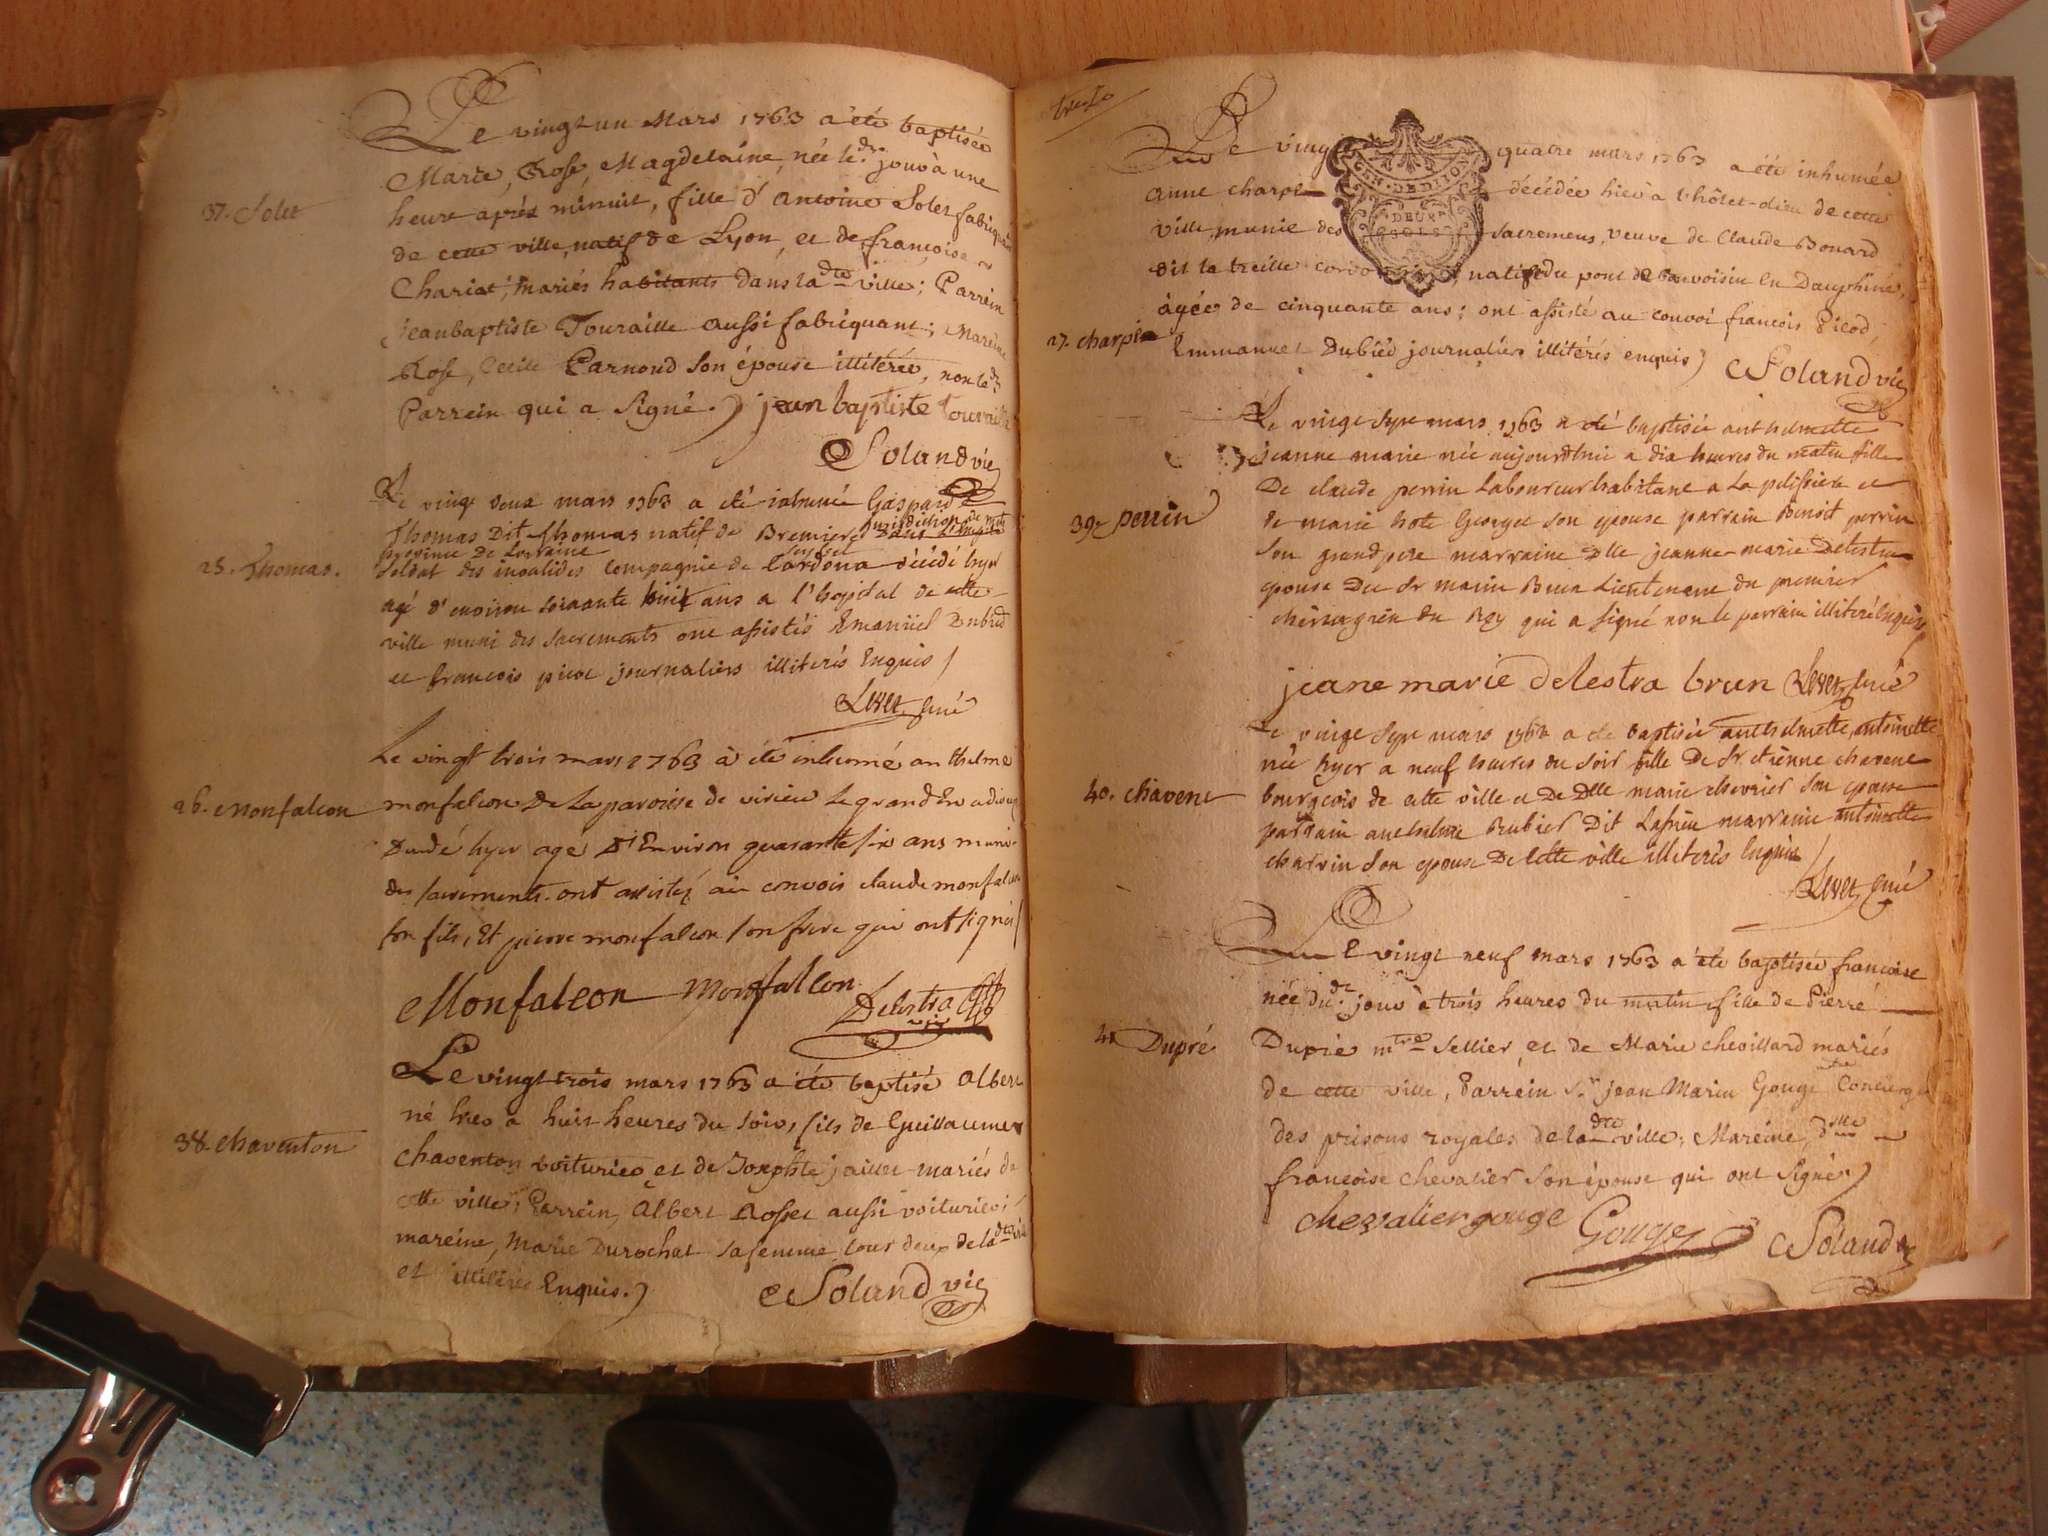 Le vingt un Mars 1763 a été baptisée
Marie, Rose, Magdelaine, née led. jour à une
37. Solet
heure après minuit, fille d'Antoine Solet fabriquant
de cette ville, natif de Lyon, et de françoise
Chariat, mariés habitants dans lade ville; Parrein
jeanbaptiste Touraille aussi fabriquant; Mareine
Rose, Cecile Parnoud son épouse illitérée, non led.
Parrein qui a signé.) jean baptiste Touraille
Soland vic
Le vingt deux mars 1763 a été inhumé Gaspard
Thomas Dit Thomas natif de Bremiere jurisdiction de
province De Lorraine
25. Thomas.
soldat des invalides compagnie de Cardona décédé hyer
agé d'environ soixante huit ans a l'hopital de cette
ville muni des sacrements ont assistés Emanüel Dubied
et françois picot journaliers illiterés Enquis /
Levet curé
Le vingt trois mars 1763 à été inhumé anthelme
26. Monfalcon
monfalcon De La paroisse de virieu Le grand En
Décédé hyer agé D'Environ quarante six ans muni
des sacrements. ont assistéz au convois claude monfalcon
son fils, Et pierre monfalcon son frere qui ont signés /
Monfalcon monfalcon Delestra vic
Le vingt trois mars 1763 a été baptisé Albert
né hier à huit heures du soir, fils de Guillaume
38. chaventon
chaventon voiturier et de Josephte jaillet mariés de
cette ville; Parrein, Albert Rosset aussi voiturier;
mareine, Marie Durochat sa femme, tous deux de lade ville
et illitérés Enquis.)
Soland vic
trente
Le vingt quatre mars 1763 a été inhumée
anne charpi décédée hier à l'hôtel-dieu de cette
GEN. DE DIJON
DEUX
SOLS
ville, munie des sacremens, veuve de Claude Bonard
dit la treille natif du pont de bauvoisin en Dauphiné,
âgée de cinquante ans; ont assisté au convoi françois Picod,
27. charpi
Emmanuel Dubied journaliers illitérés enquis)
Soland vic
Le vingt sept mars 1763 a été baptisée anthelmette
jeanne marie née aujourdhuy a dix heures du matin fille
De claude perrin Laboureur habitant a La pelissiere et
39. perrin
de marie hote Georget son epouse parrain Benoit perrin
son grand pere marraine Dlle jeanne marie Delestra
epouse Du Sr marin Brun Lieutenant du premier
chirurgien du Roy qui a signé non le parrain illiteré Enquis
jeane marie delestra brun Levet curé
Le vingt sept mars 1763 a été baptisée anthelmette, antoinette
née hyer a neuf heures du soir fille De Sr etienne chavent
40. chavent
bourgeois de cette ville et De Dlle marie chevrier son epouse
parrain anthelme Rubier Dit Lafrieu marraine antoinette
charvin son epouse De cette ville illiterés Enquis /
Levet curé
Le vingt neuf mars 1763 a été baptisée françoise
née dud. jour à trois heures du matin, fille de Pierre
41 Dupré
Dupré mtre sellier, et de Marie chevillard mariés
de cette ville, Parrein Sr. jean Marin Gouge Concierge
des prisons royales de lade ville; Mareine, Dlle
francoise chevalier son épouse qui ont signé)
chevalier gouge Gouge Soland vic